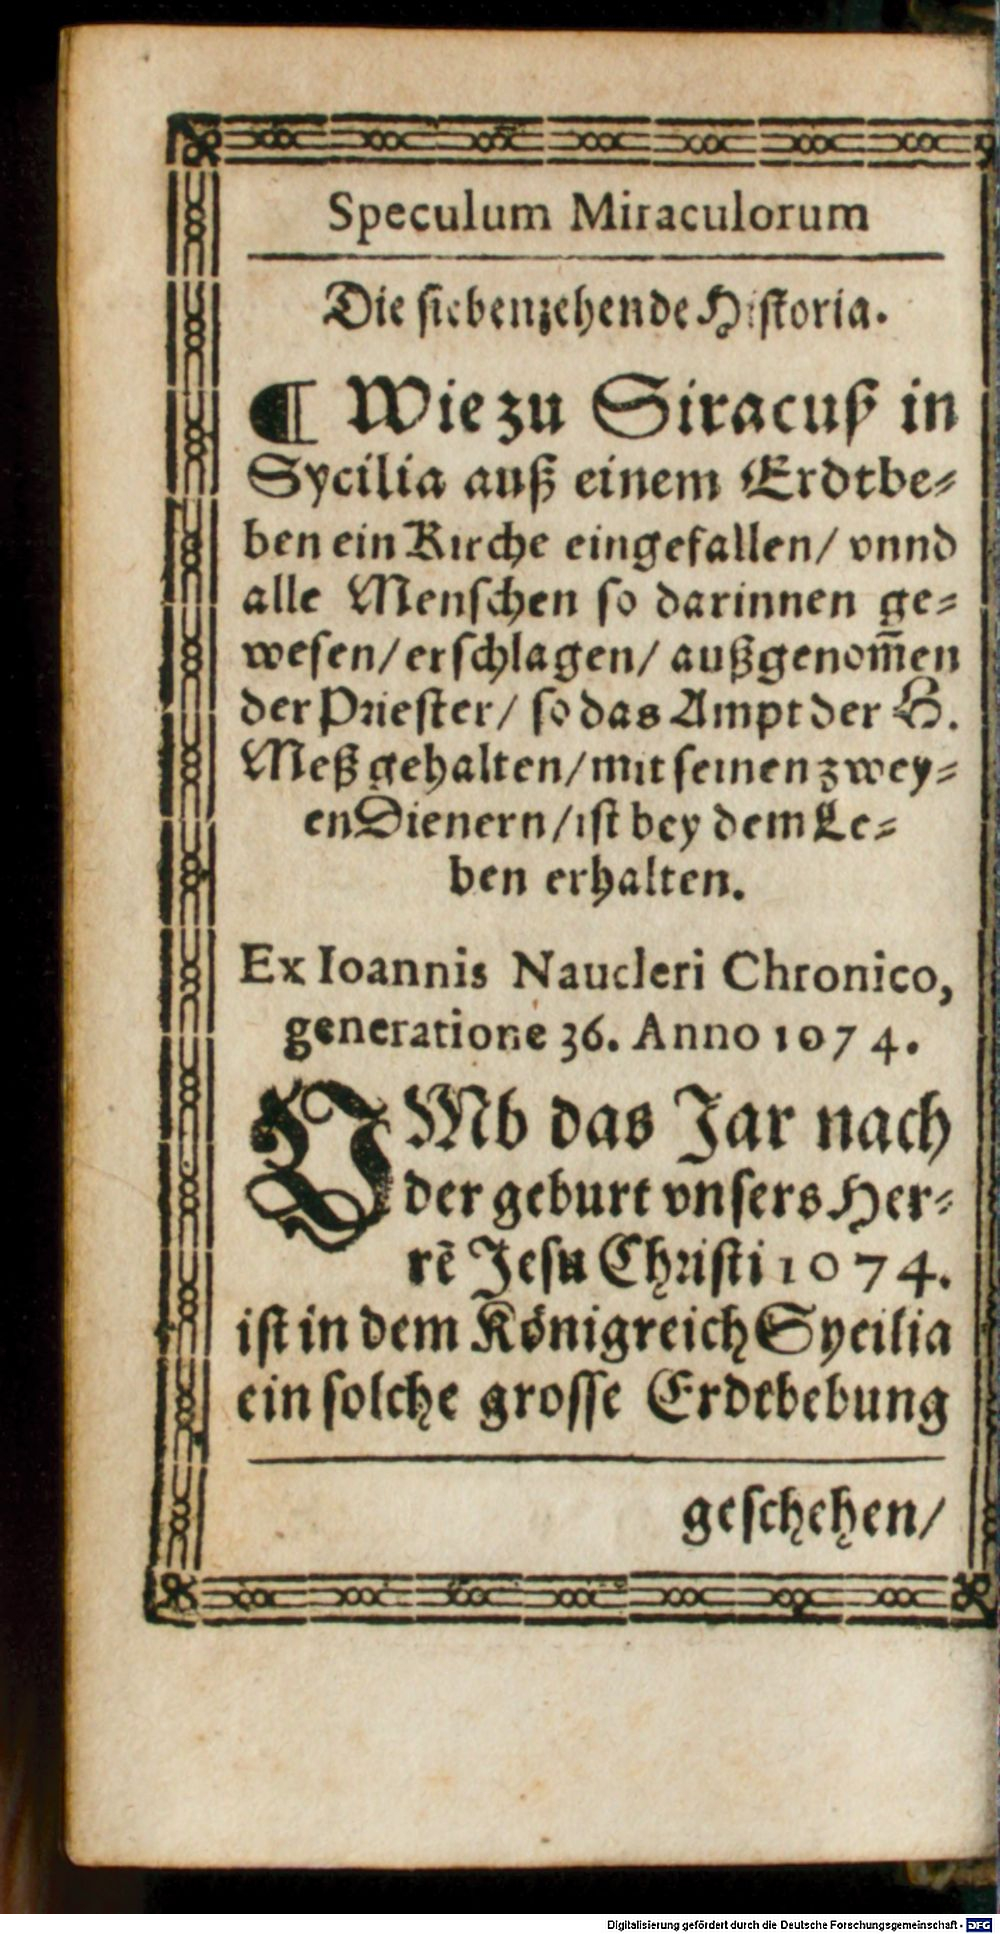 Speculum Miraculorum
Die siebenzehende Historia.
¶ Wie zu Siracuß in
Sycilia auß einem Erdtbe⸗
ben ein Kirche eingefallen/ vnnd
alle Menschen so darinnen ge⸗
wesen/ erschlagen/ außgenom̃en
der Priester/ so das Ampt der H.
Meß gehalten/ mit seinen zwey⸗
en Dienern/ ist bey dem Le⸗
ben erhalten.
Ex Ioannis Naucleri Chronico,
generatione 36. Anno 1074.
VMb das Jar nach
der geburt vnsers Her⸗
rẽ Jesu Christi 1074.
ist in dem Königreich Sycilia
ein solche grosse Erdtbebung
geschehen/
Digitalisierung gefördert durch die Deutsche Forschungsgemeinschaft - DFG